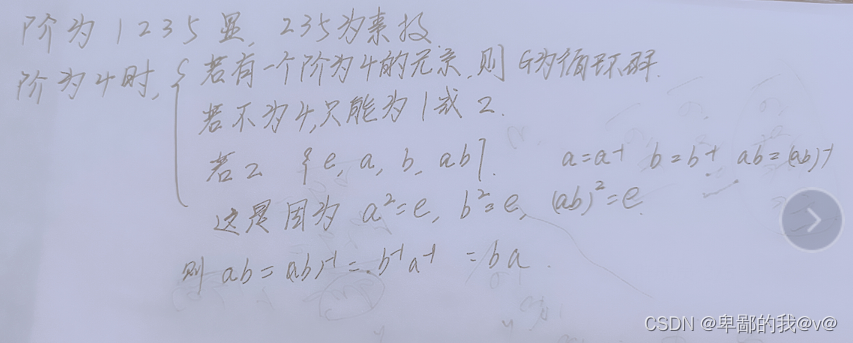 阶为 1 2 3 5 显, 2 3 5 为素数
阶为4时, { 若有一个阶为4的元素,则G为循环群.
若不为4,只能为1或2.
若2 {e, a, b, ab}. a=a⁻¹ b=b⁻¹ ab=(ab)⁻¹
这是因为 a²=e, b²=e, (ab)²=e
则 ab=(ab)⁻¹=b⁻¹a⁻¹ =ba.
CSDN @卑鄙的我@v@